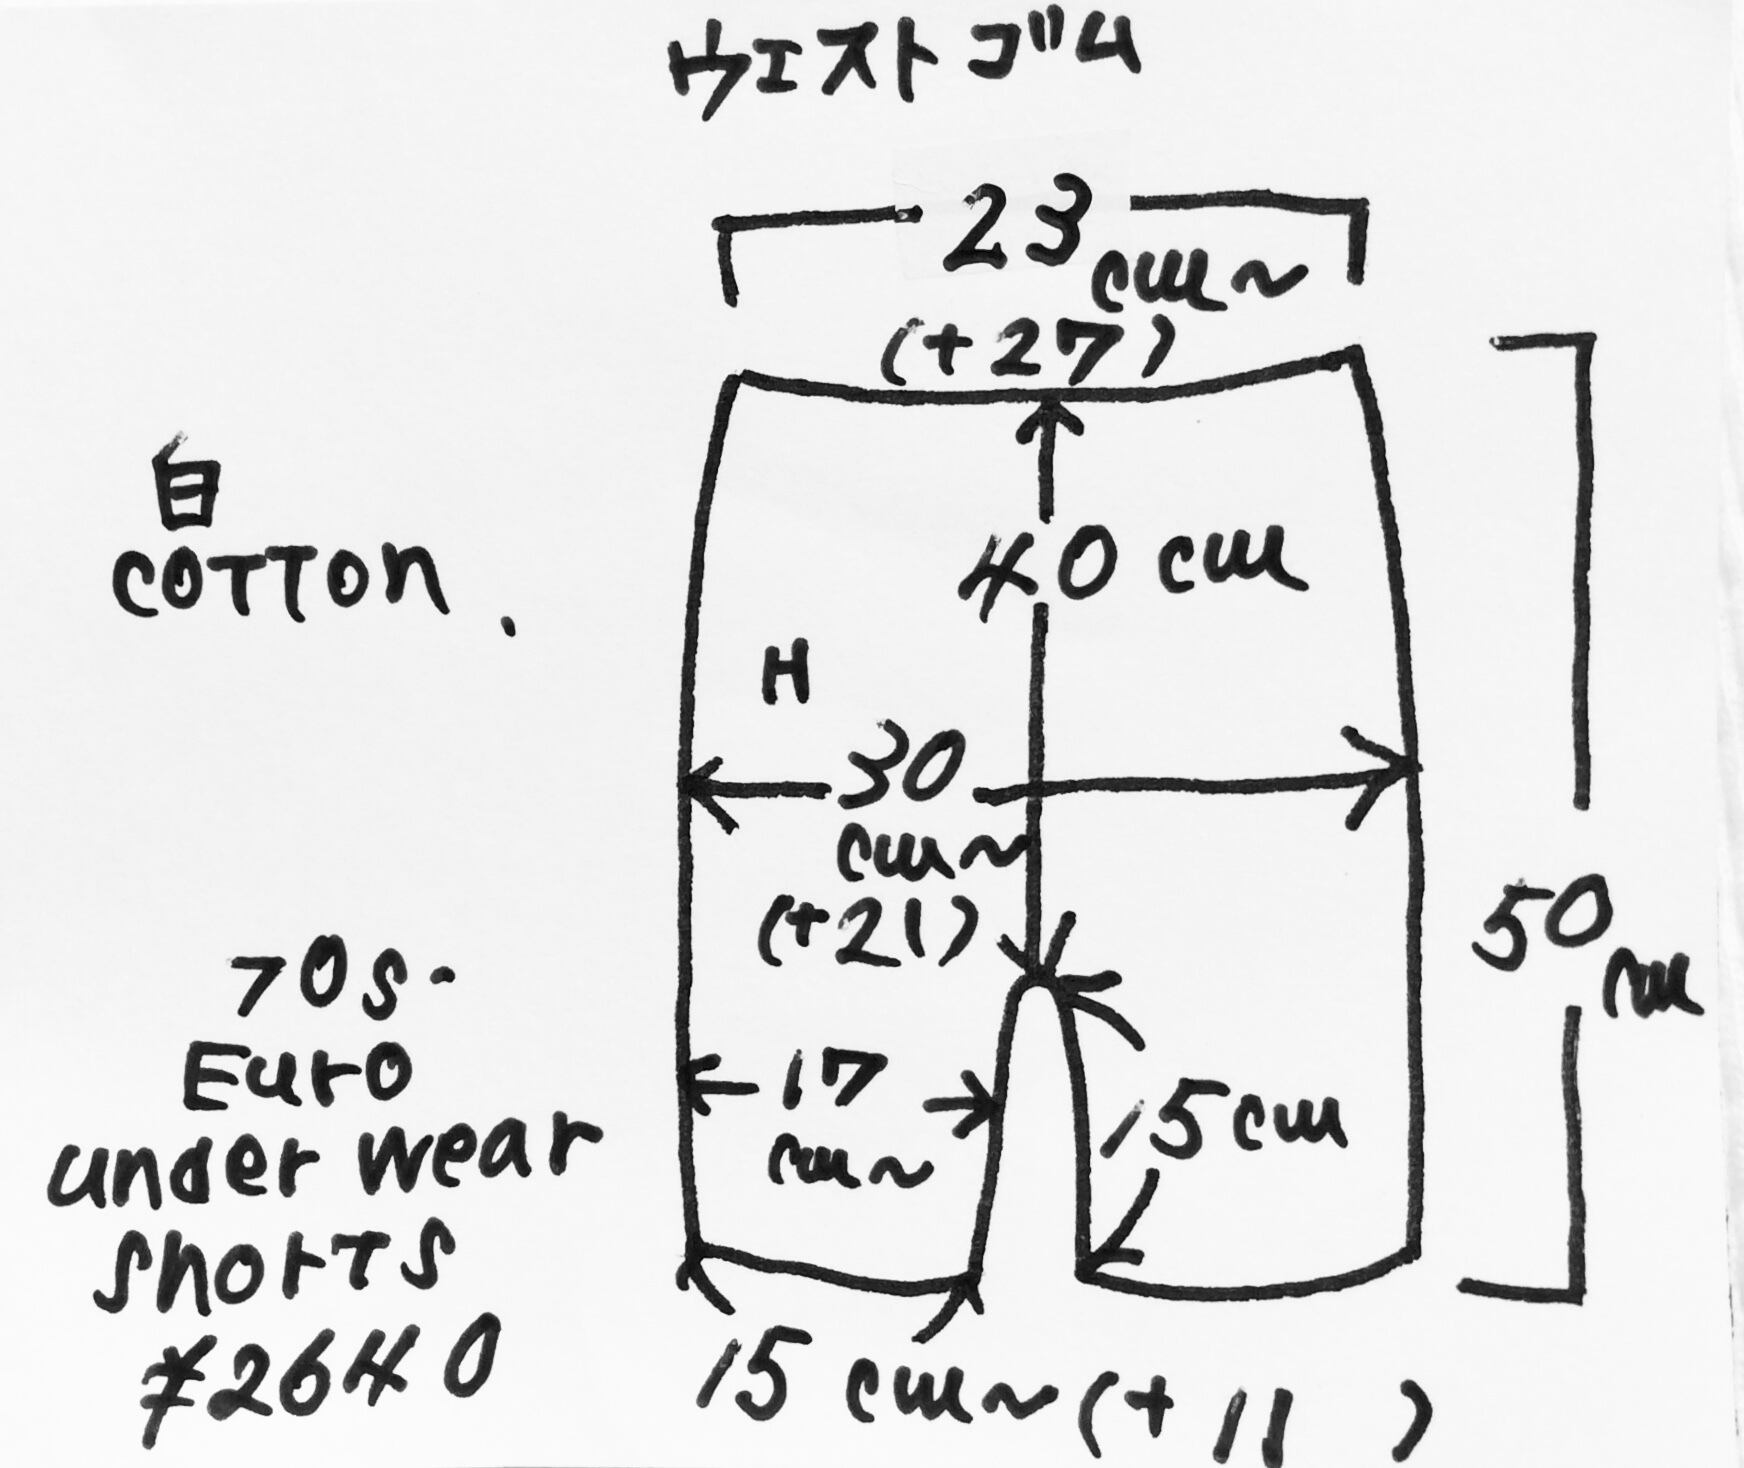 ウエストゴム
23cm~
(+27)
白
COTTON.
40cm
H
30
cm~
(+21)
50cm
70s.
Euro
under wear
shorts
¥2640
17
cm~
15cm
15cm~(+11)